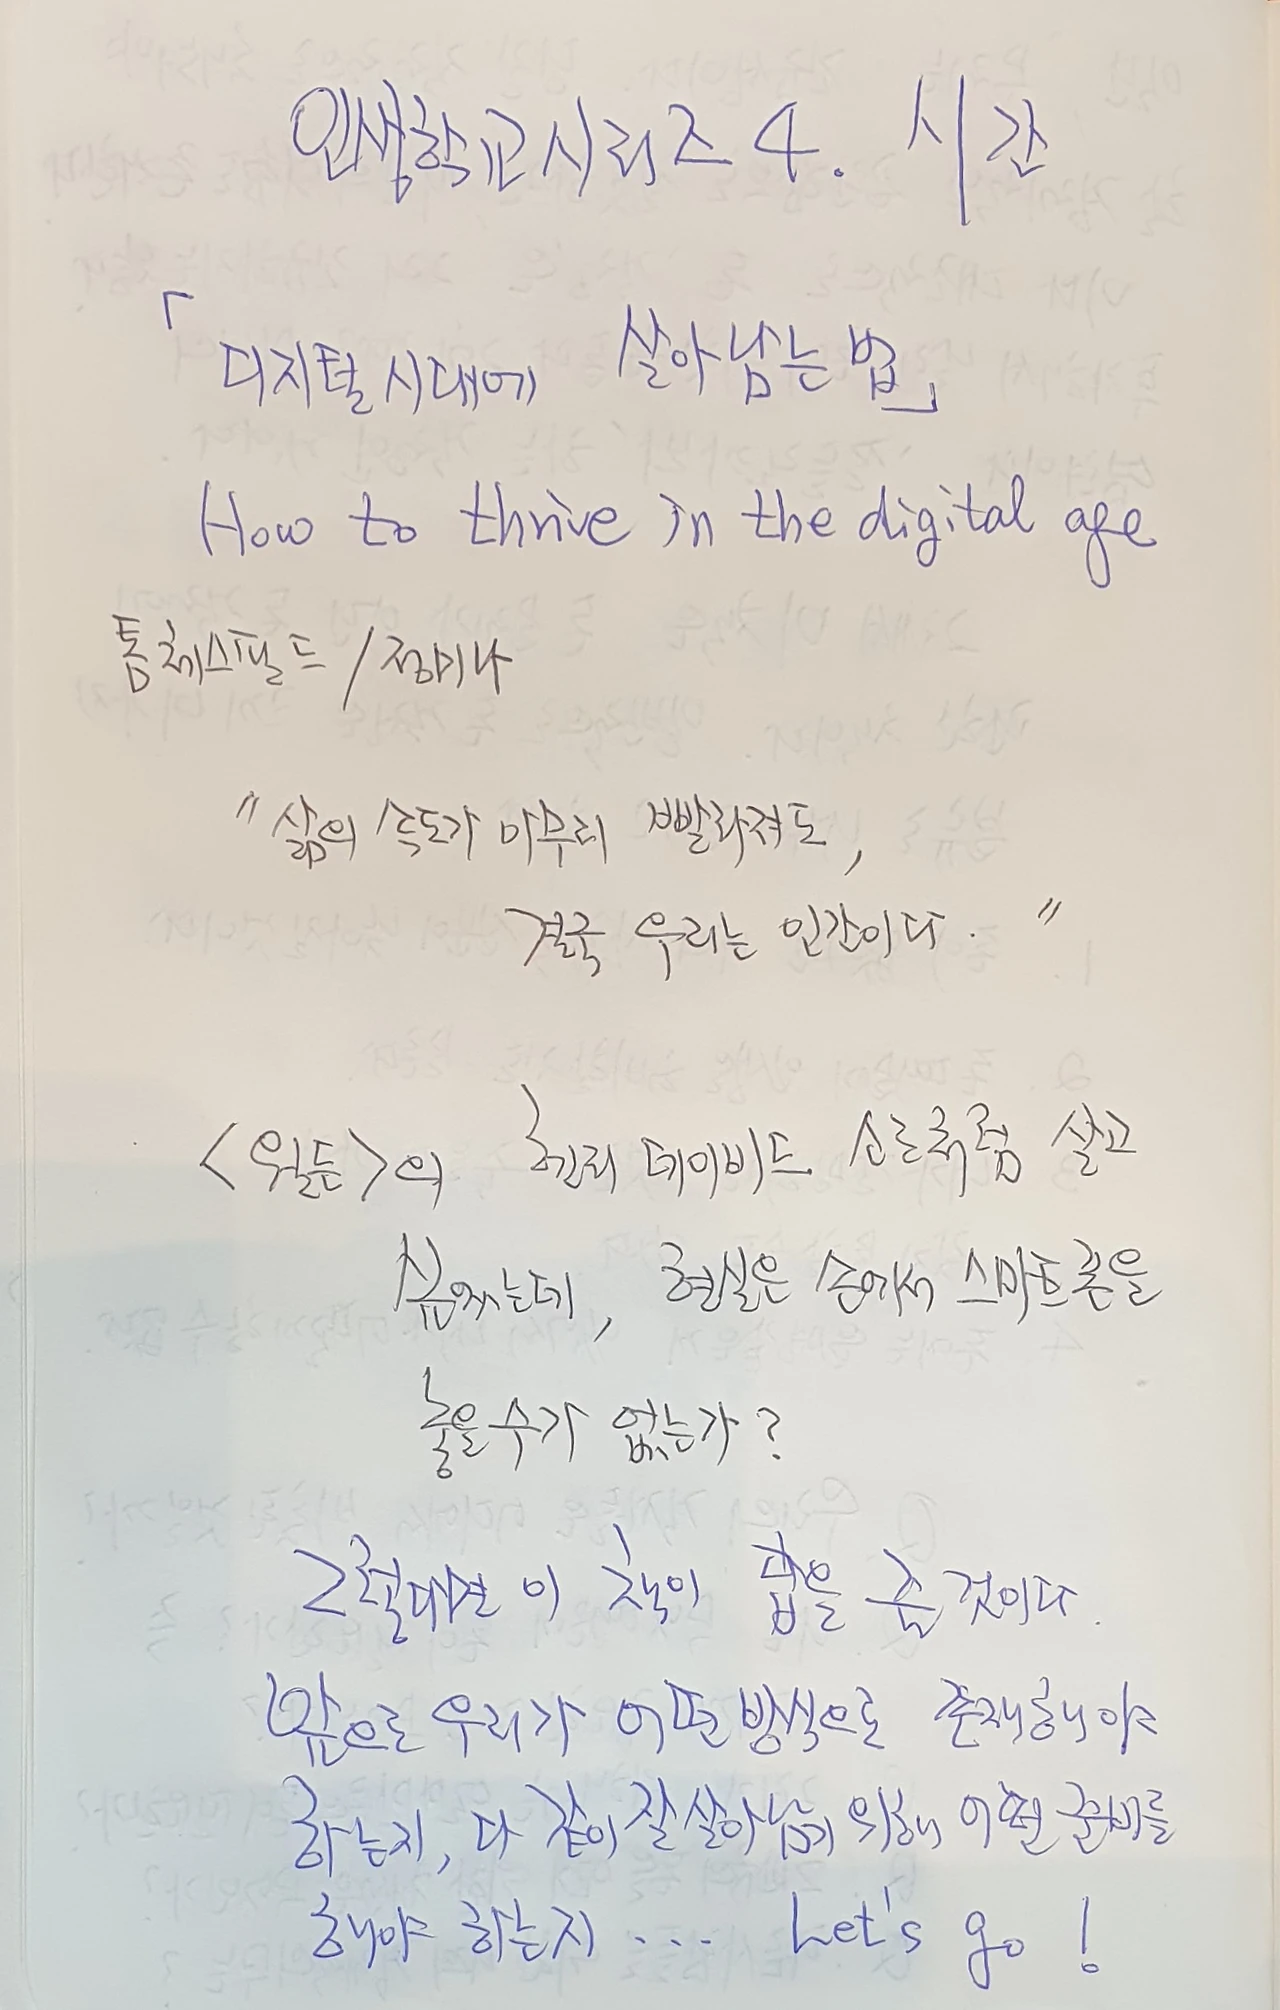 인생학교시리즈 4. 시간
「디지털시대에 살아남는 법」
How to thrive in the digital age
톰체스필드 / 정미나
"삶의 속도가 아무리 빨라져도,
결국 우리는 인간이다. "
<월든>의 헨리 데이비드 소로처럼 살고
싶었는데, 현실은 손에서 스마트폰을
놓을 수가 없는가?
그렇다면 이 책이 답을 준 것이다.
앞으로 우리가 어떤 방식으로 존재해야
하는지, 다 같이 잘 살아남기 위해 어떤 준비를
해야 하는지 .... Let's go!